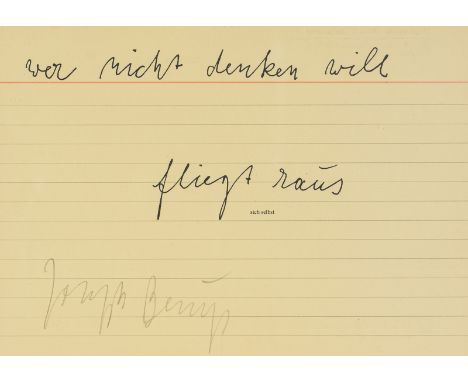 wer nicht denken will
fliegt raus
sich selbst
Joseph Beuys